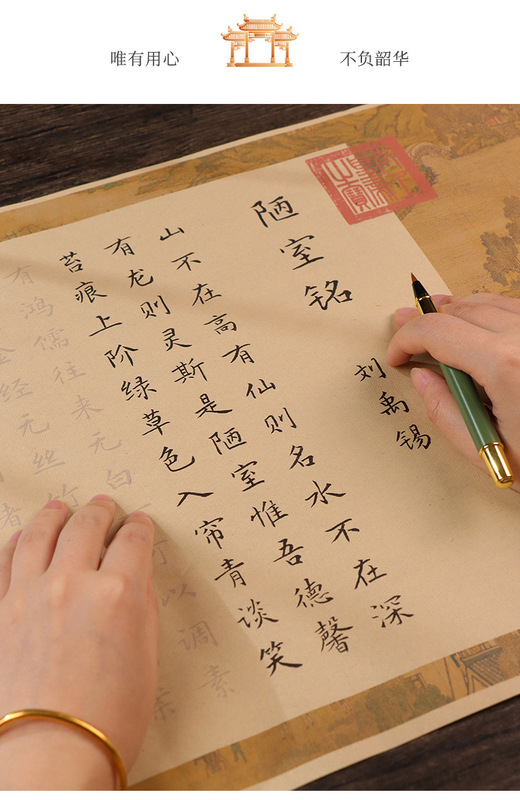 唯有用心
不负韶华
陋室铭
刘禹锡
山不在高有仙则名水不在深
有龙则灵斯是陋室惟吾德馨
苔痕上阶绿草色入帘青谈笑
有鸿儒往来无白以调素
金经无丝竹